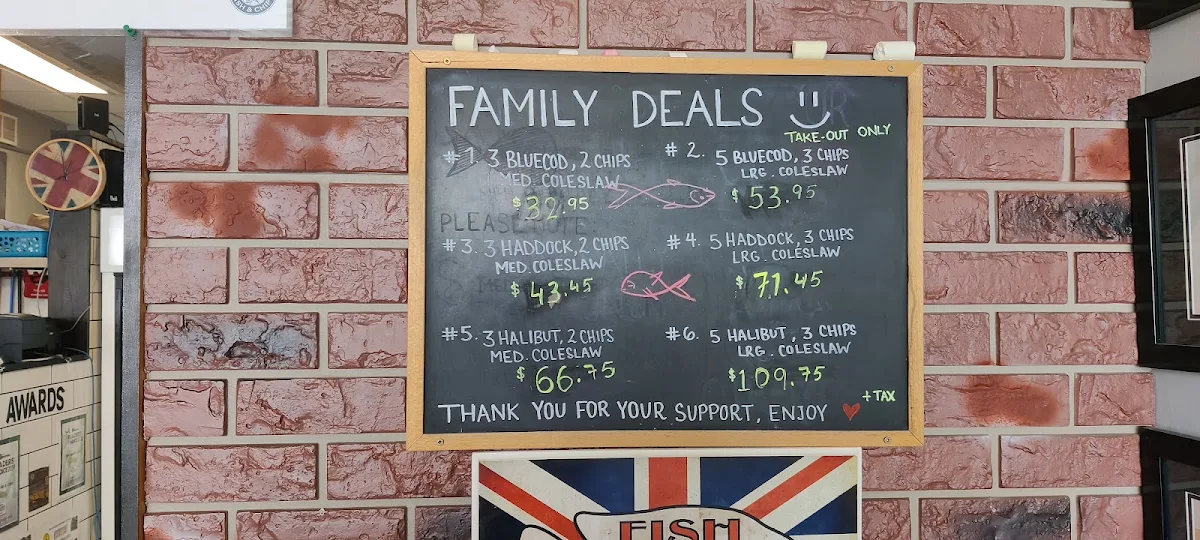 FISH & CHIPS
FAMILY DEALS
TAKE-OUT ONLY
#1. 3 BLUECOD, 2 CHIPS
MED. COLESLAW
$32.95
#2. 5 BLUECOD, 3 CHIPS
LRG. COLESLAW
$53.95
PLEASE NOTE:
#3. 3 HADDOCK, 2 CHIPS
MED. COLESLAW
$43.45
#4. 5 HADDOCK, 3 CHIPS
LRG. COLESLAW
$71.45
#5. 3 HALIBUT, 2 CHIPS
MED. COLESLAW
$66.75
#6. 5 HALIBUT, 3 CHIPS
LRG. COLESLAW
$109.75
+ TAX
THANK YOU FOR YOUR SUPPORT, ENJOY
AWARDS
FISH